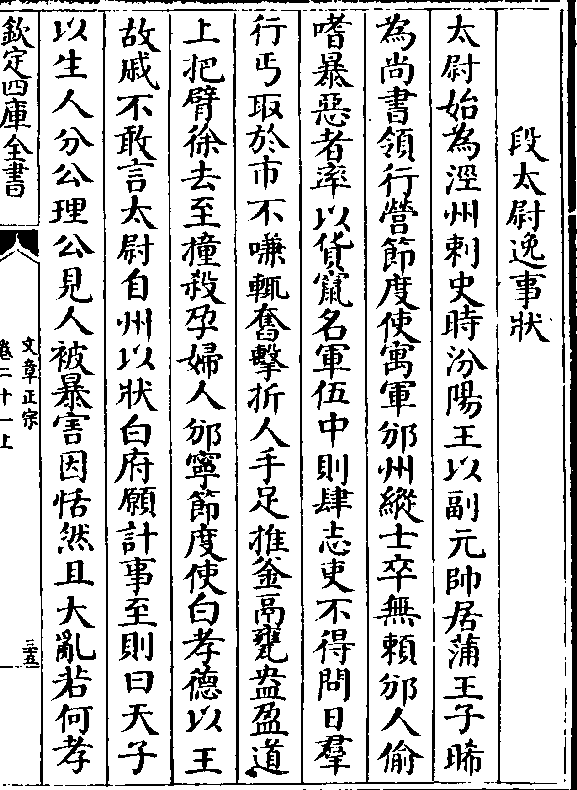 段太尉逸事狀
太尉始為涇州刺史時汾陽王以副元帥居蒲王子晞
為尚書領行營節度使寓軍邠州縱士卒無賴邠人偷
嗜暴惡者率以貨竄名軍伍中則肆志吏不得問日羣
行丐取於市不嗛輒奮擊折人手足推釡鬲甕盎盈道
上把臂徐去至撞殺孕婦人邠寧節度使白孝德以王
故戚不敢言太尉自州以狀白府願計事至則曰天子
以生人分公理公見人被暴害因恬然且大亂若何孝
欽定四庫全書
文章正宗
卷二十一上
三五